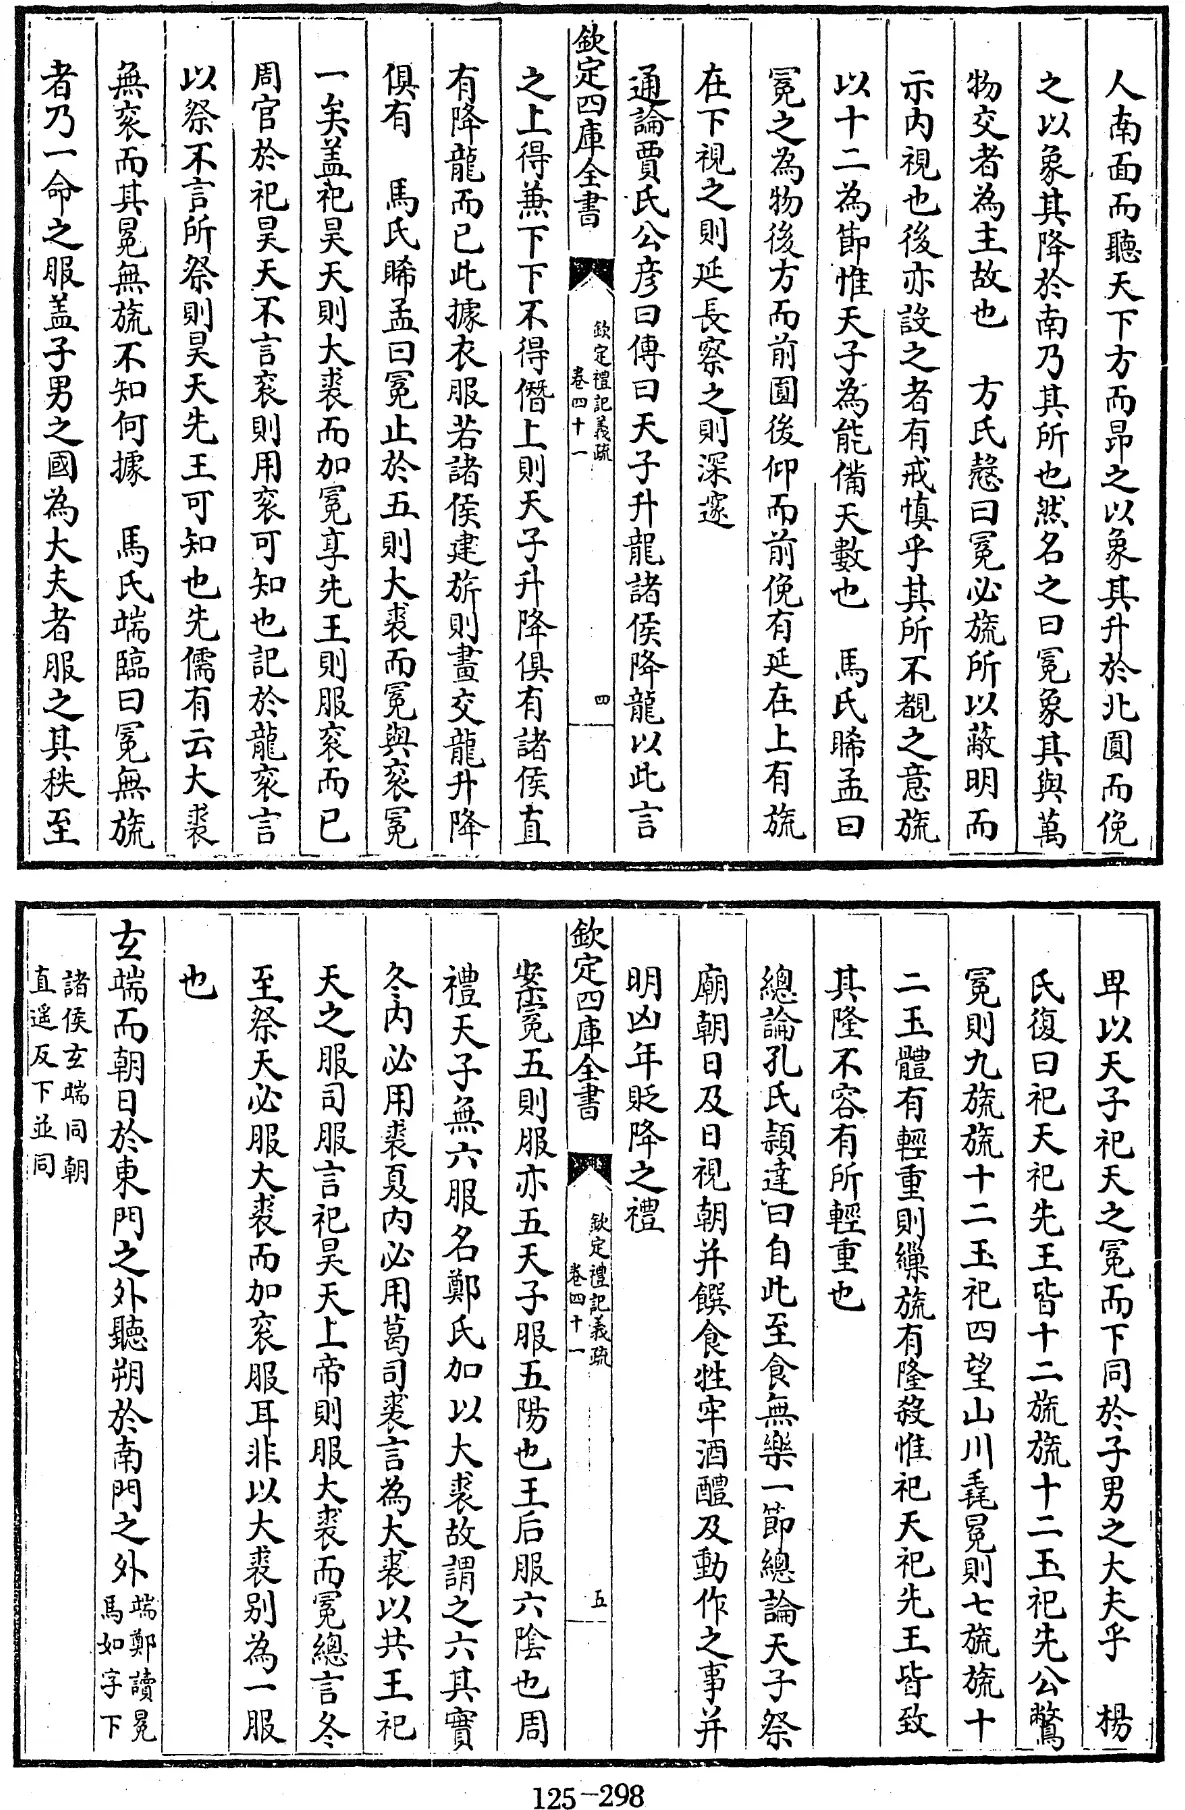 人南面而聽天下方而昂之以象其升於北圓而俛
之以象其降於南乃其所也然名之曰冕象其與萬
物交者為主故也　方氏慤曰冕必旒所以蔽明而
示内視也後亦設之者有戒慎乎其所不覩之意旒
以十二為節惟天子為能備天數也　馬氏睎孟曰
冕之為物後方而前圓後仰而前俛有延在上有旒
在下視之則延長察之則深邃
通論賈氏公彦曰傳曰天子升龍諸侯降龍以此言
欽定四庫全書
欽定禮記義疏
卷四十一
四
之上得兼下下不得僭上則天子升降俱有諸侯直
有降龍而已此據衣服若諸侯建旂則畫交龍升降
俱有　馬氏睎孟曰冕止於五則大裘而冕與衮冕
一矣盖祀昊天則大裘而加冕享先王則服衮而已
周官於祀昊天不言衮則用衮可知也記於龍衮言
以祭不言所祭則昊天先王可知也先儒有云大裘
無衮而其冕無旒不知何據　馬氏端臨曰冕無旒
者乃一命之服盖子男之國為大夫者服之其秩至
卑以天子祀天之冕而下同於子男之大夫乎　楊
氏復曰祀天祀先王皆十二旒旒十二玉祀先公鷩
冕則九旒旒十二玉祀四望山川毳冕則七旒旒十
二玉體有輕重則繅旒有隆殺惟祀天祀先王皆致
其隆不容有所輕重也
總論孔氏頴達曰自此至食無樂一節總論天子祭
廟朝日及日視朝并饌食牲牢酒醴及動作之事并
明凶年貶降之禮
欽定四庫全書
欽定禮記義疏
卷四十一
五
案冕五則服亦五天子服五陽也王后服六陰也周
禮天子無六服名鄭氏加以大裘故謂之六其實
冬内必用裘夏内必用葛司裘言為大裘以共王祀
天之服司服言祀昊天上帝則服大裘而冕總言冬
至祭天必服大裘而加衮服耳非以大裘别為一服
也
玄端而朝日於東門之外聽朔於南門之外端鄭讀冕
馬如字下
諸侯玄端同朝
直遥反下並同
125-298